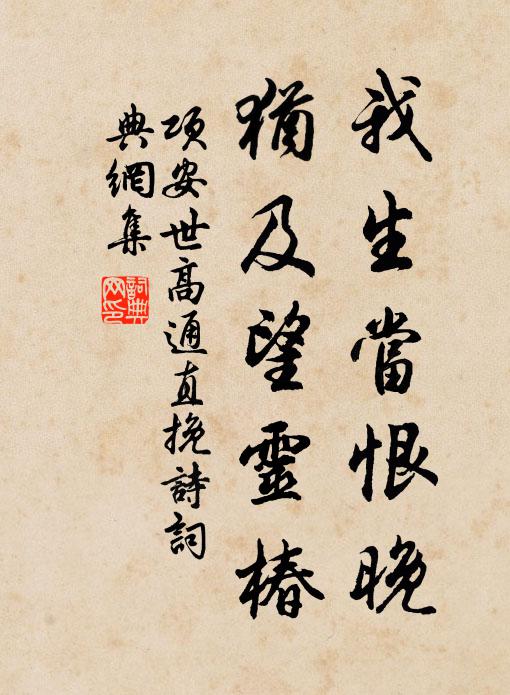 我生當恨晚
猶及望靈椿
項安世高通直挽詩詞
典網集
詞典
网印